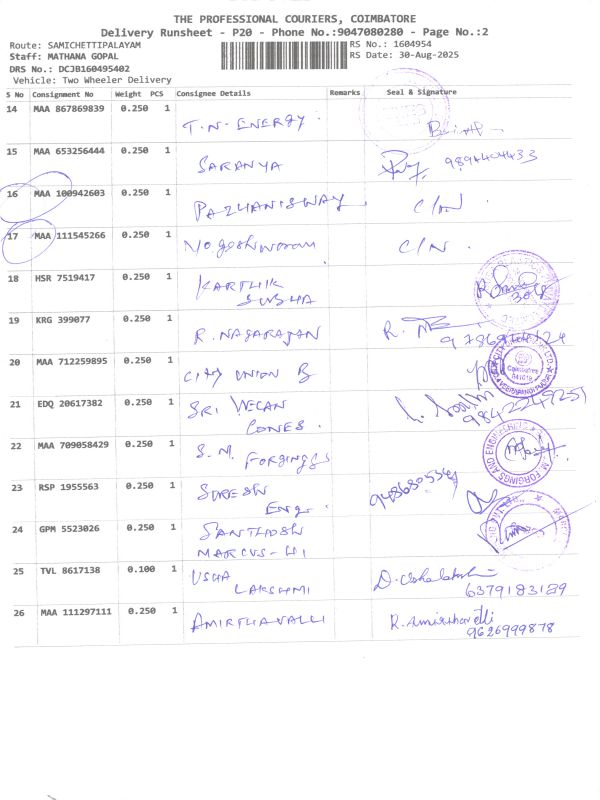 THE PROFESSIONAL COURIERS, COIMBATORE
Delivery Runsheet - P20 - Phone No.:9047080280 - Page No.:2
Route: SAMICHETTIPALAYAM RS No.: 1604954
Staff: MATHANA GOPAL RS Date: 30-Aug-2025
DRS No.: DCJB160495402
Vehicle: Two Wheeler Delivery
S No Consignment No Weight PCS Consignee Details Remarks Seal & Signature
14 MAA 867869839 0.250 1 T.N-ENERGY
15 MAA 653256444 0.250 1 SARANYA 9894404433
16 MAA 100942603 0.250 1 PAZHANISWAY C/N
17 MAA 111545266 0.250 1 C/N
18 HSR 7519417 0.250 1 KARTHIK
SUBHA
19 KRG 399077 0.250 1 R. NAGARAJAN R.
20 MAA 712259895 0.250 1 CITY UNION B
21 EDQ 20617382 0.250 1 SRI VELAN
CONES.
22 MAA 709058429 0.250 1 S.M. FORGINGS
23 RSP 1955563 0.250 1 SURESH
Eng.
24 GPM 5523026 0.250 1 SANTHOSH
MARCUS-HI
25 TVL 8617138 0.100 1 USHA D. Ushalakshmi
LAKSHMI 6379183189
26 MAA 111297111 0.250 1 AMIRTHAVALLI R. Amirthavalli
9626999878